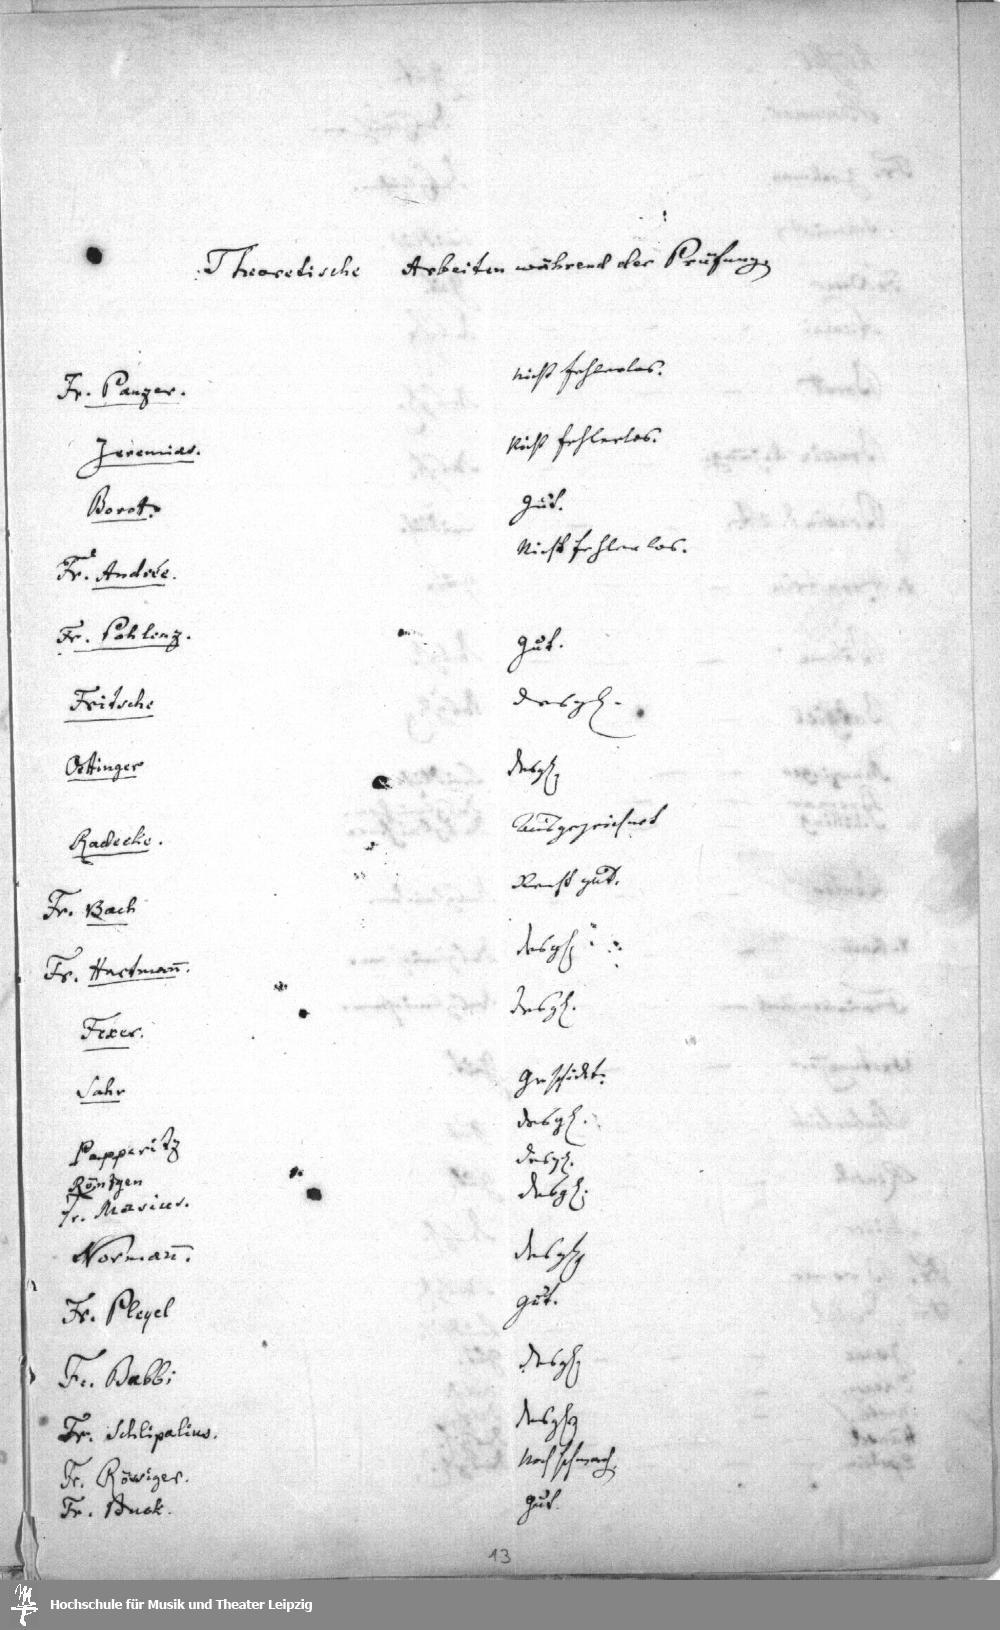 Theoretische Arbeiten während der Prüfung
Fr. Panzer. Nicht fehlerlos.
Jeremias. Nicht fehlerlos.
Borot. gut.
Fr. Andrée. Nicht fehlerlos.
Fr. Pohlenz. gut.
Fritsche desgl.
Oettinger desgl
Radecke. Ausgezeichnet
Fr. Bach Recht gut.
Fr. Hartmañ. desgl
Fexer. desgl.
Sahr Geschickt.
Papperitz desgl.
Röntgen desgl.
Fr. Masius. desgl.
Normañ. desgl
Fr. Pleyel gut.
Fr. Babbi desgl
Fr. Schlipalius. desgl
Fr. Röwiger. Noch schwach.
Fr. Buck. gut.
13
Hochschule für Musik und Theater Leipzig